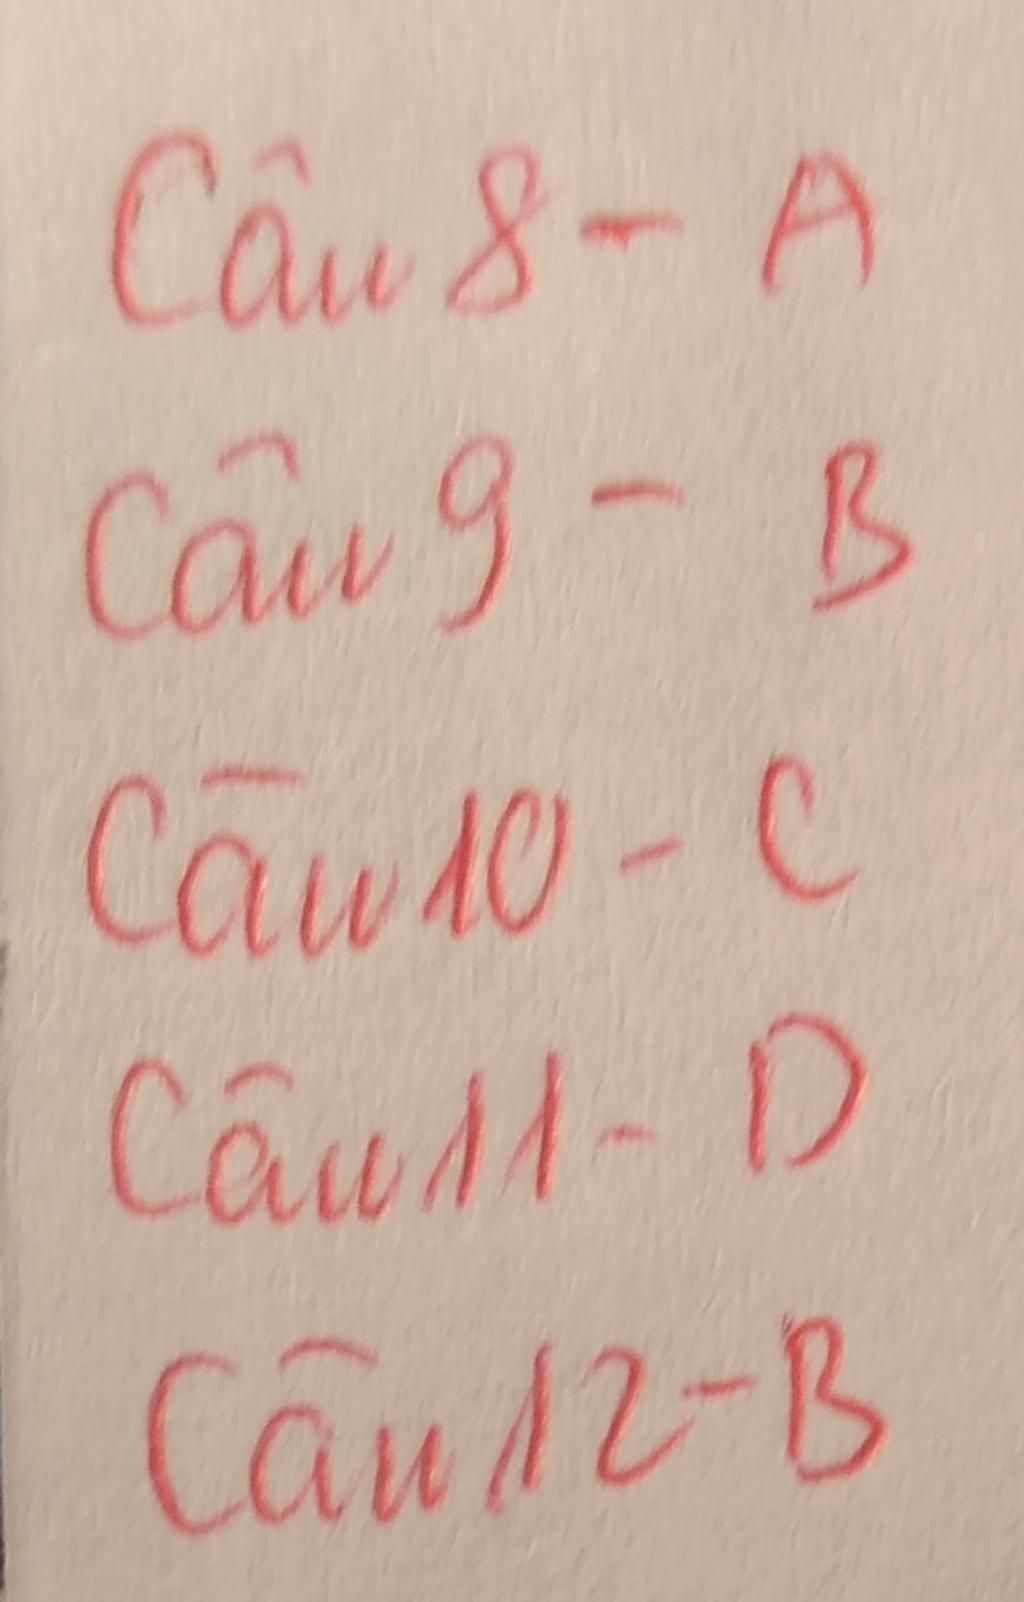 Câu 8 - A
Câu 9 - B
Câu 10 - C
Câu 11 - D
Câu 12 - B